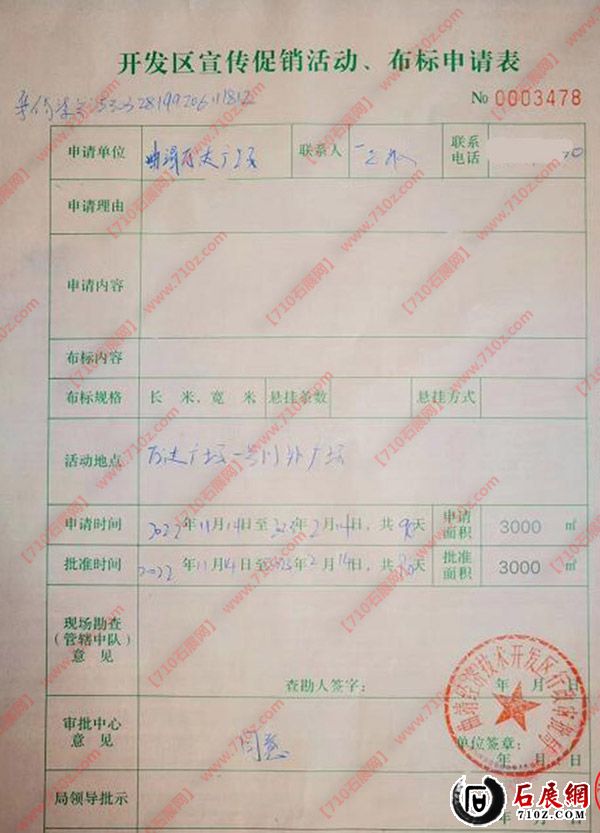 开发区宣传促销活动、布标申请表
№ 0003478
申请单位 曲靖万达广场 联系人 联系电话
申请理由
申请内容
布标内容
布标规格 长 米、宽 米 悬挂条数 悬挂方式
活动地点 万达广场一号门外广场
申请时间 2022年11月14日至2023年2月14日，共90天 申请面积 3000 ㎡
批准时间 2022年11月14日至2023年2月14日，共90天 批准面积 3000 ㎡
现场勘查（管辖中队）意见
查勘人签字： 年 月 日
审批中心意见 同意
单位签章：
年 月 日
局领导批示
【710石展网】 www.710z.com
石展網
710Z.COM